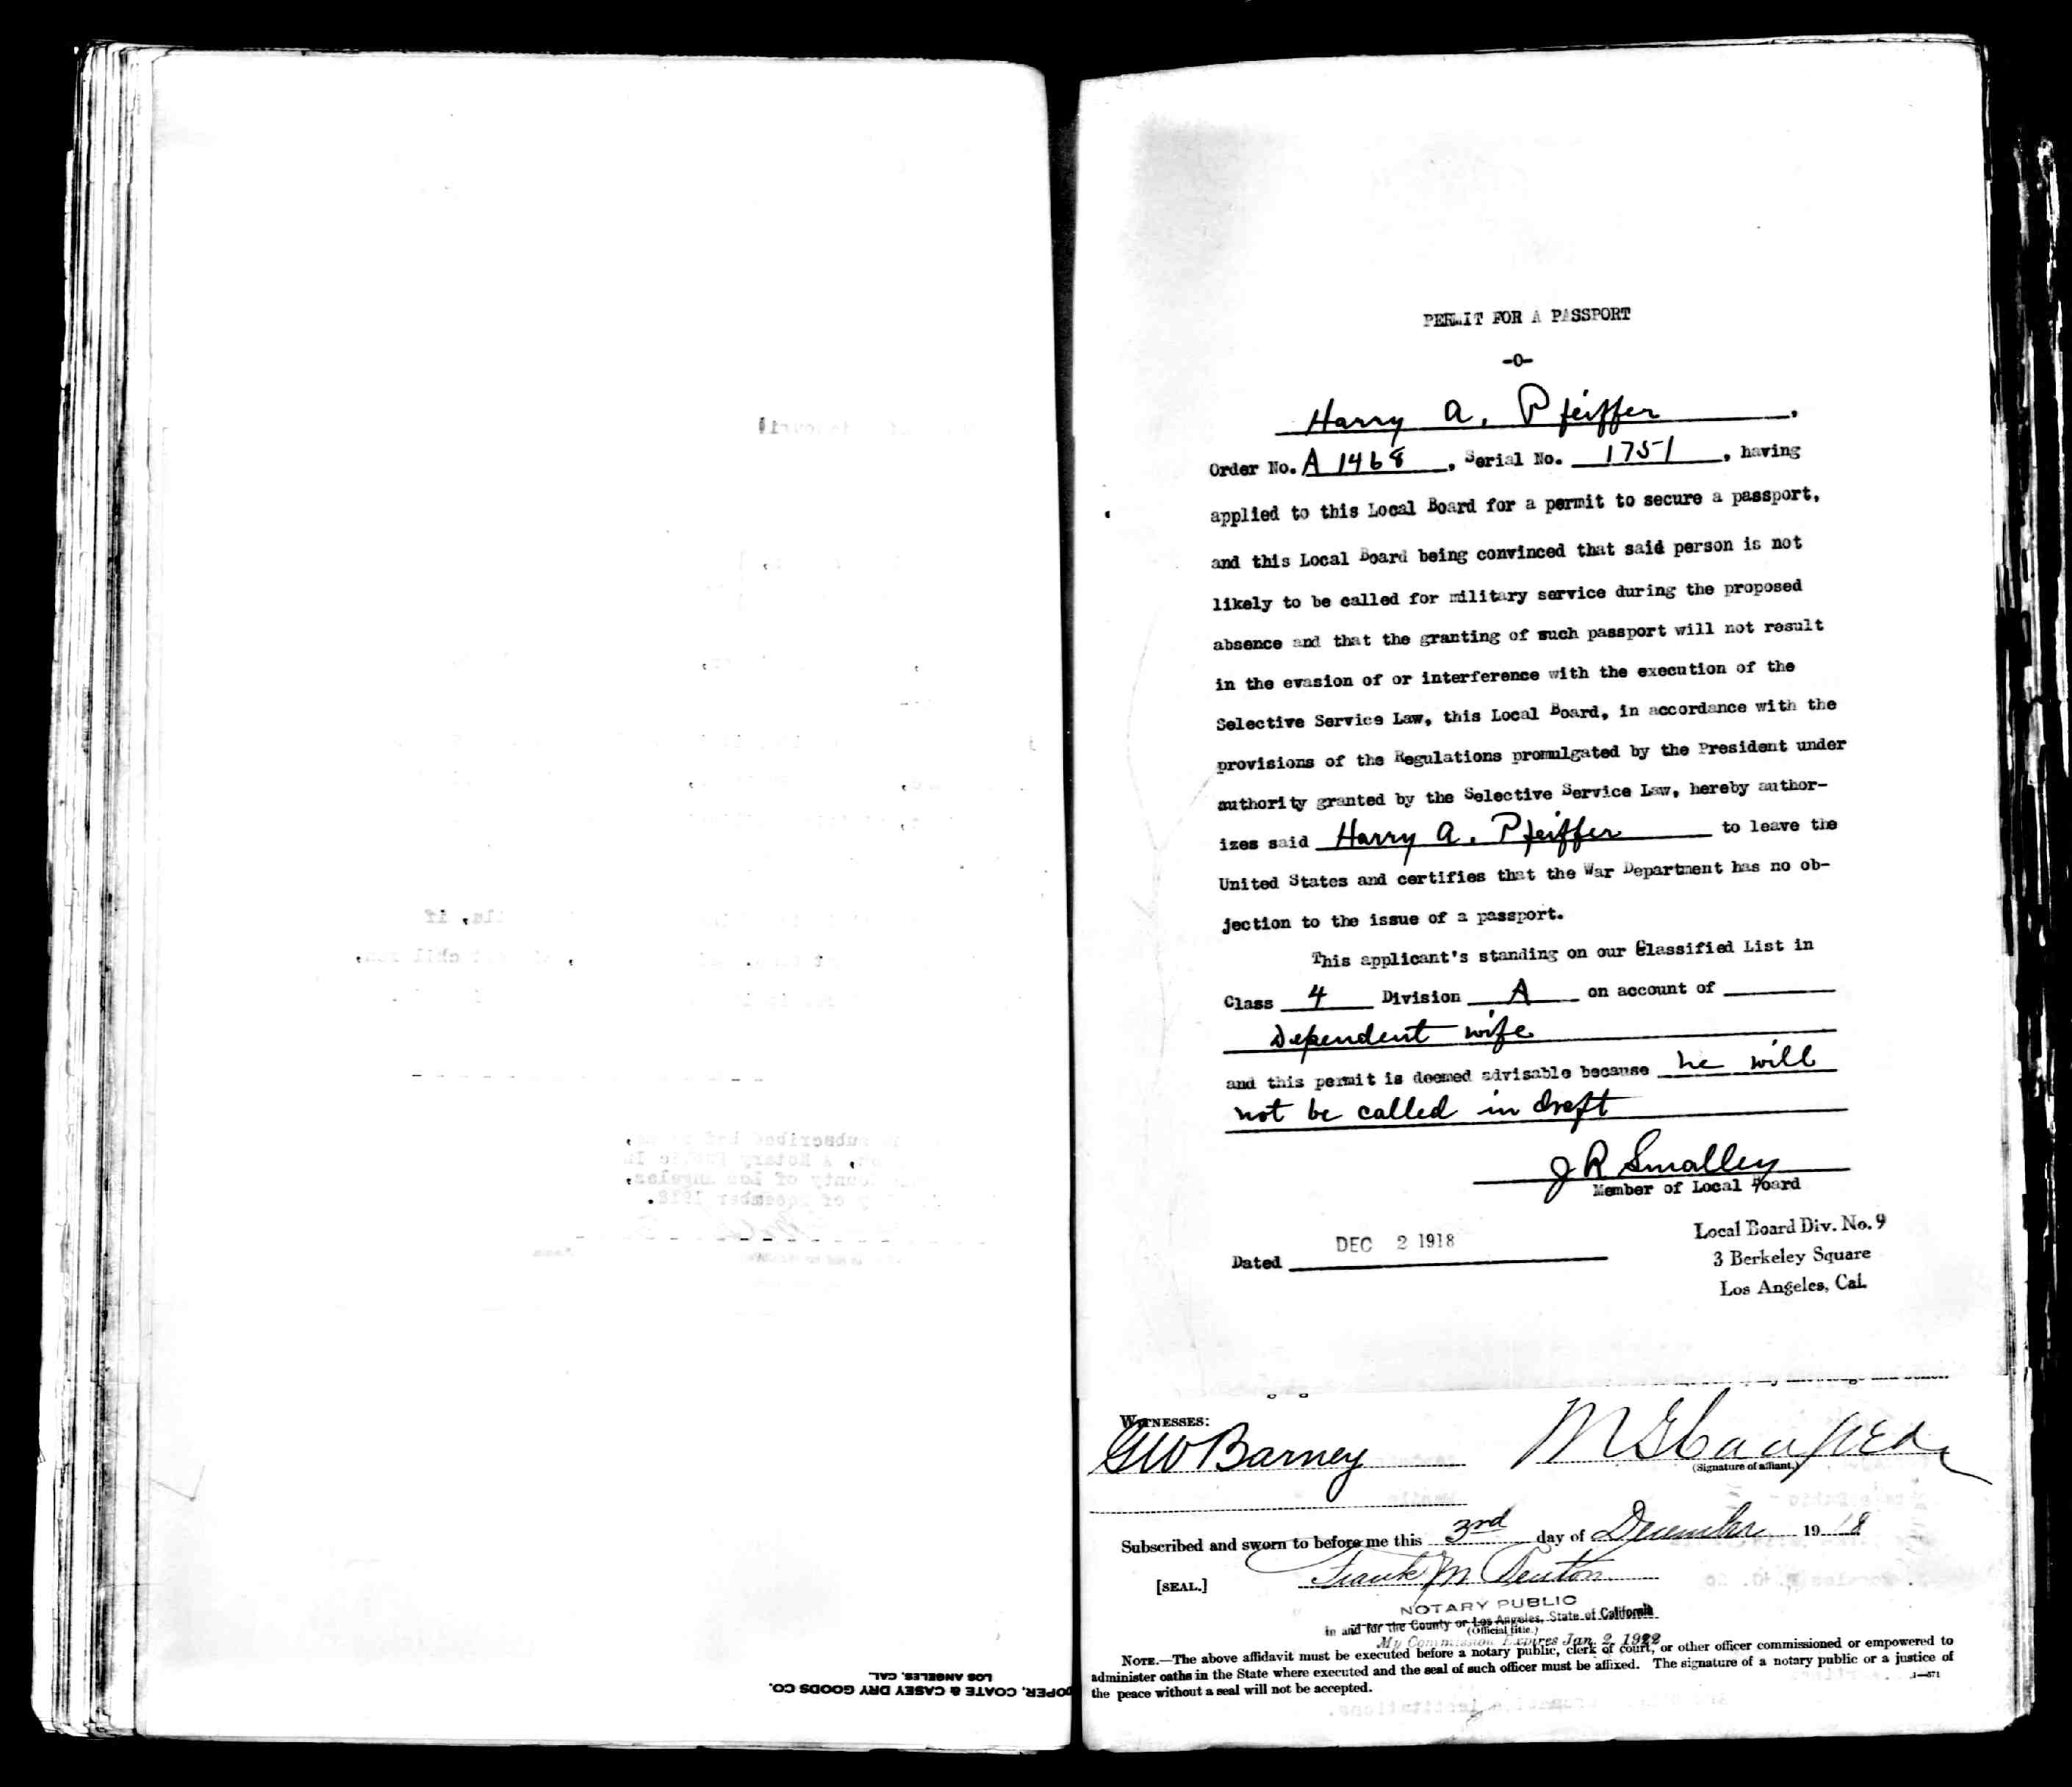 PERMIT FOR A PASSPORT
-0-
Harry A. Pfeiffer.
Order No. A 1468, Serial No. 1751, having
applied to this Local Board for a permit to secure a passport,
and this Local Board being convinced that said person is not
likely to be called for military service during the proposed
absence and that the granting of such passport will not result
in the evasion of or interference with the execution of the
Selective Service Law, this Local Board, in accordance with the
provisions of the Regulations promulgated by the President under
authority granted by the Selective Service Law, hereby author-
izes said Harry A. Pfeiffer to leave the
United States and certifies that the War Department has no ob-
jection to the issue of a passport.
This applicant's standing on our Classified List in
Class 4 Division A on account of
Dependent wife
and this permit is deemed advisable because he will
not be called in draft
J R Smalley
Member of Local Board
Dated DEC 2 1918
Local Board Div. No. 9
3 Berkeley Square
Los Angeles, Cal.
WITNESSES:
GW Barney
(Signature of affiant.)
Subscribed and sworn to before me this 3rd day of December 1918
[SEAL.]
Frank M
NOTARY PUBLIC
in and for the County of Los Angeles, State of California
(Official title.)
My Commission Expires Jan. 2, 1922
NOTE.—The above affidavit must be executed before a notary public, clerk of court, or other officer commissioned or empowered to
administer oaths in the State where executed and the seal of such officer must be affixed. The signature of a notary public or a justice of
the peace without a seal will not be accepted.
OOPER, COATE & CASEY DRY GOODS CO.
LOS ANGELES, CAL.